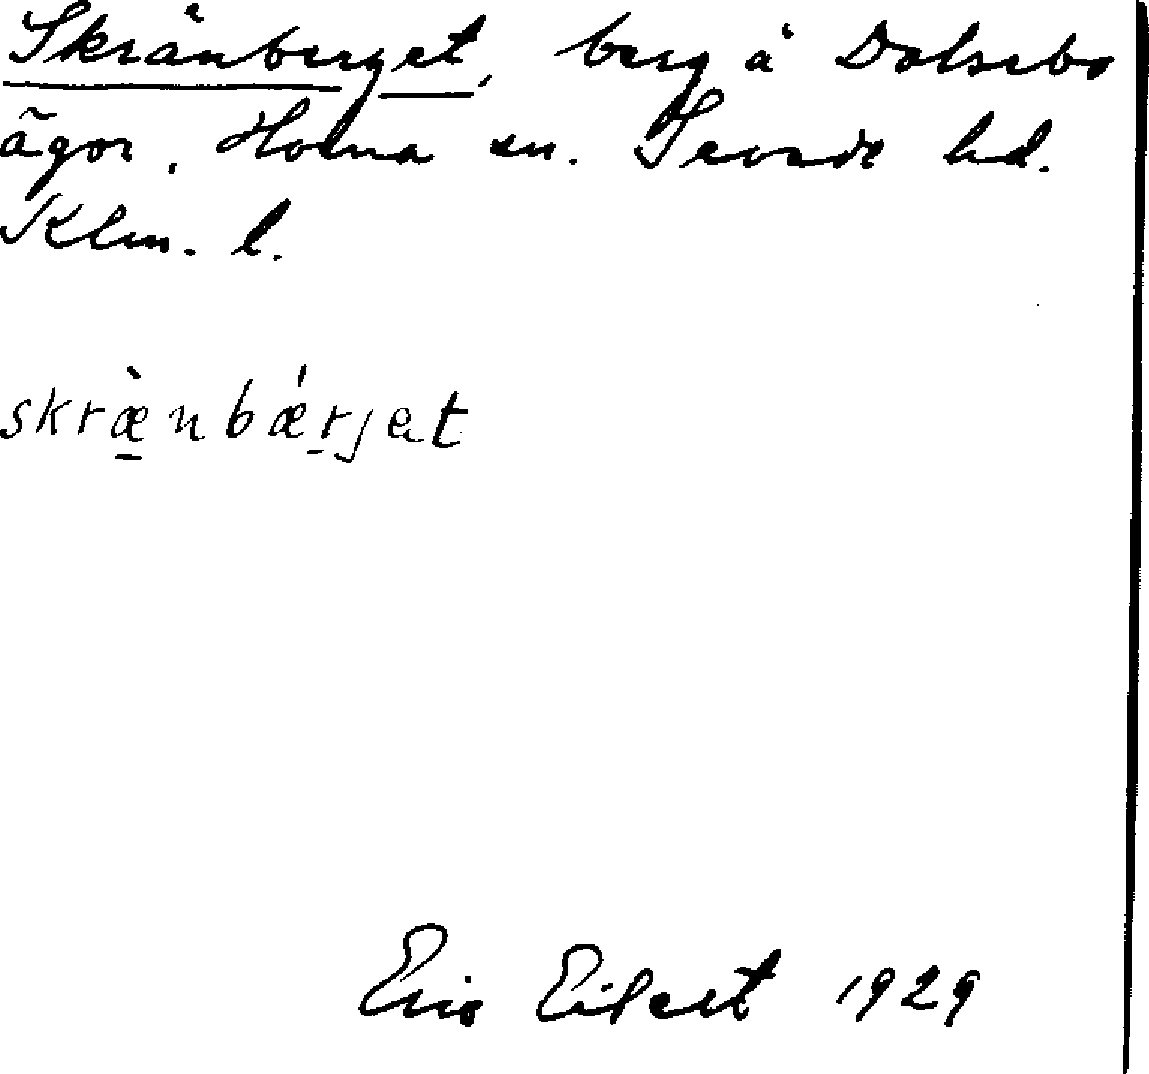 Skränberget, berg å Dalsebo
ägor, Horna sn. Sevede hd.
Klm. l.
skræ̀nbǽrjet
Eric Eilert 1929